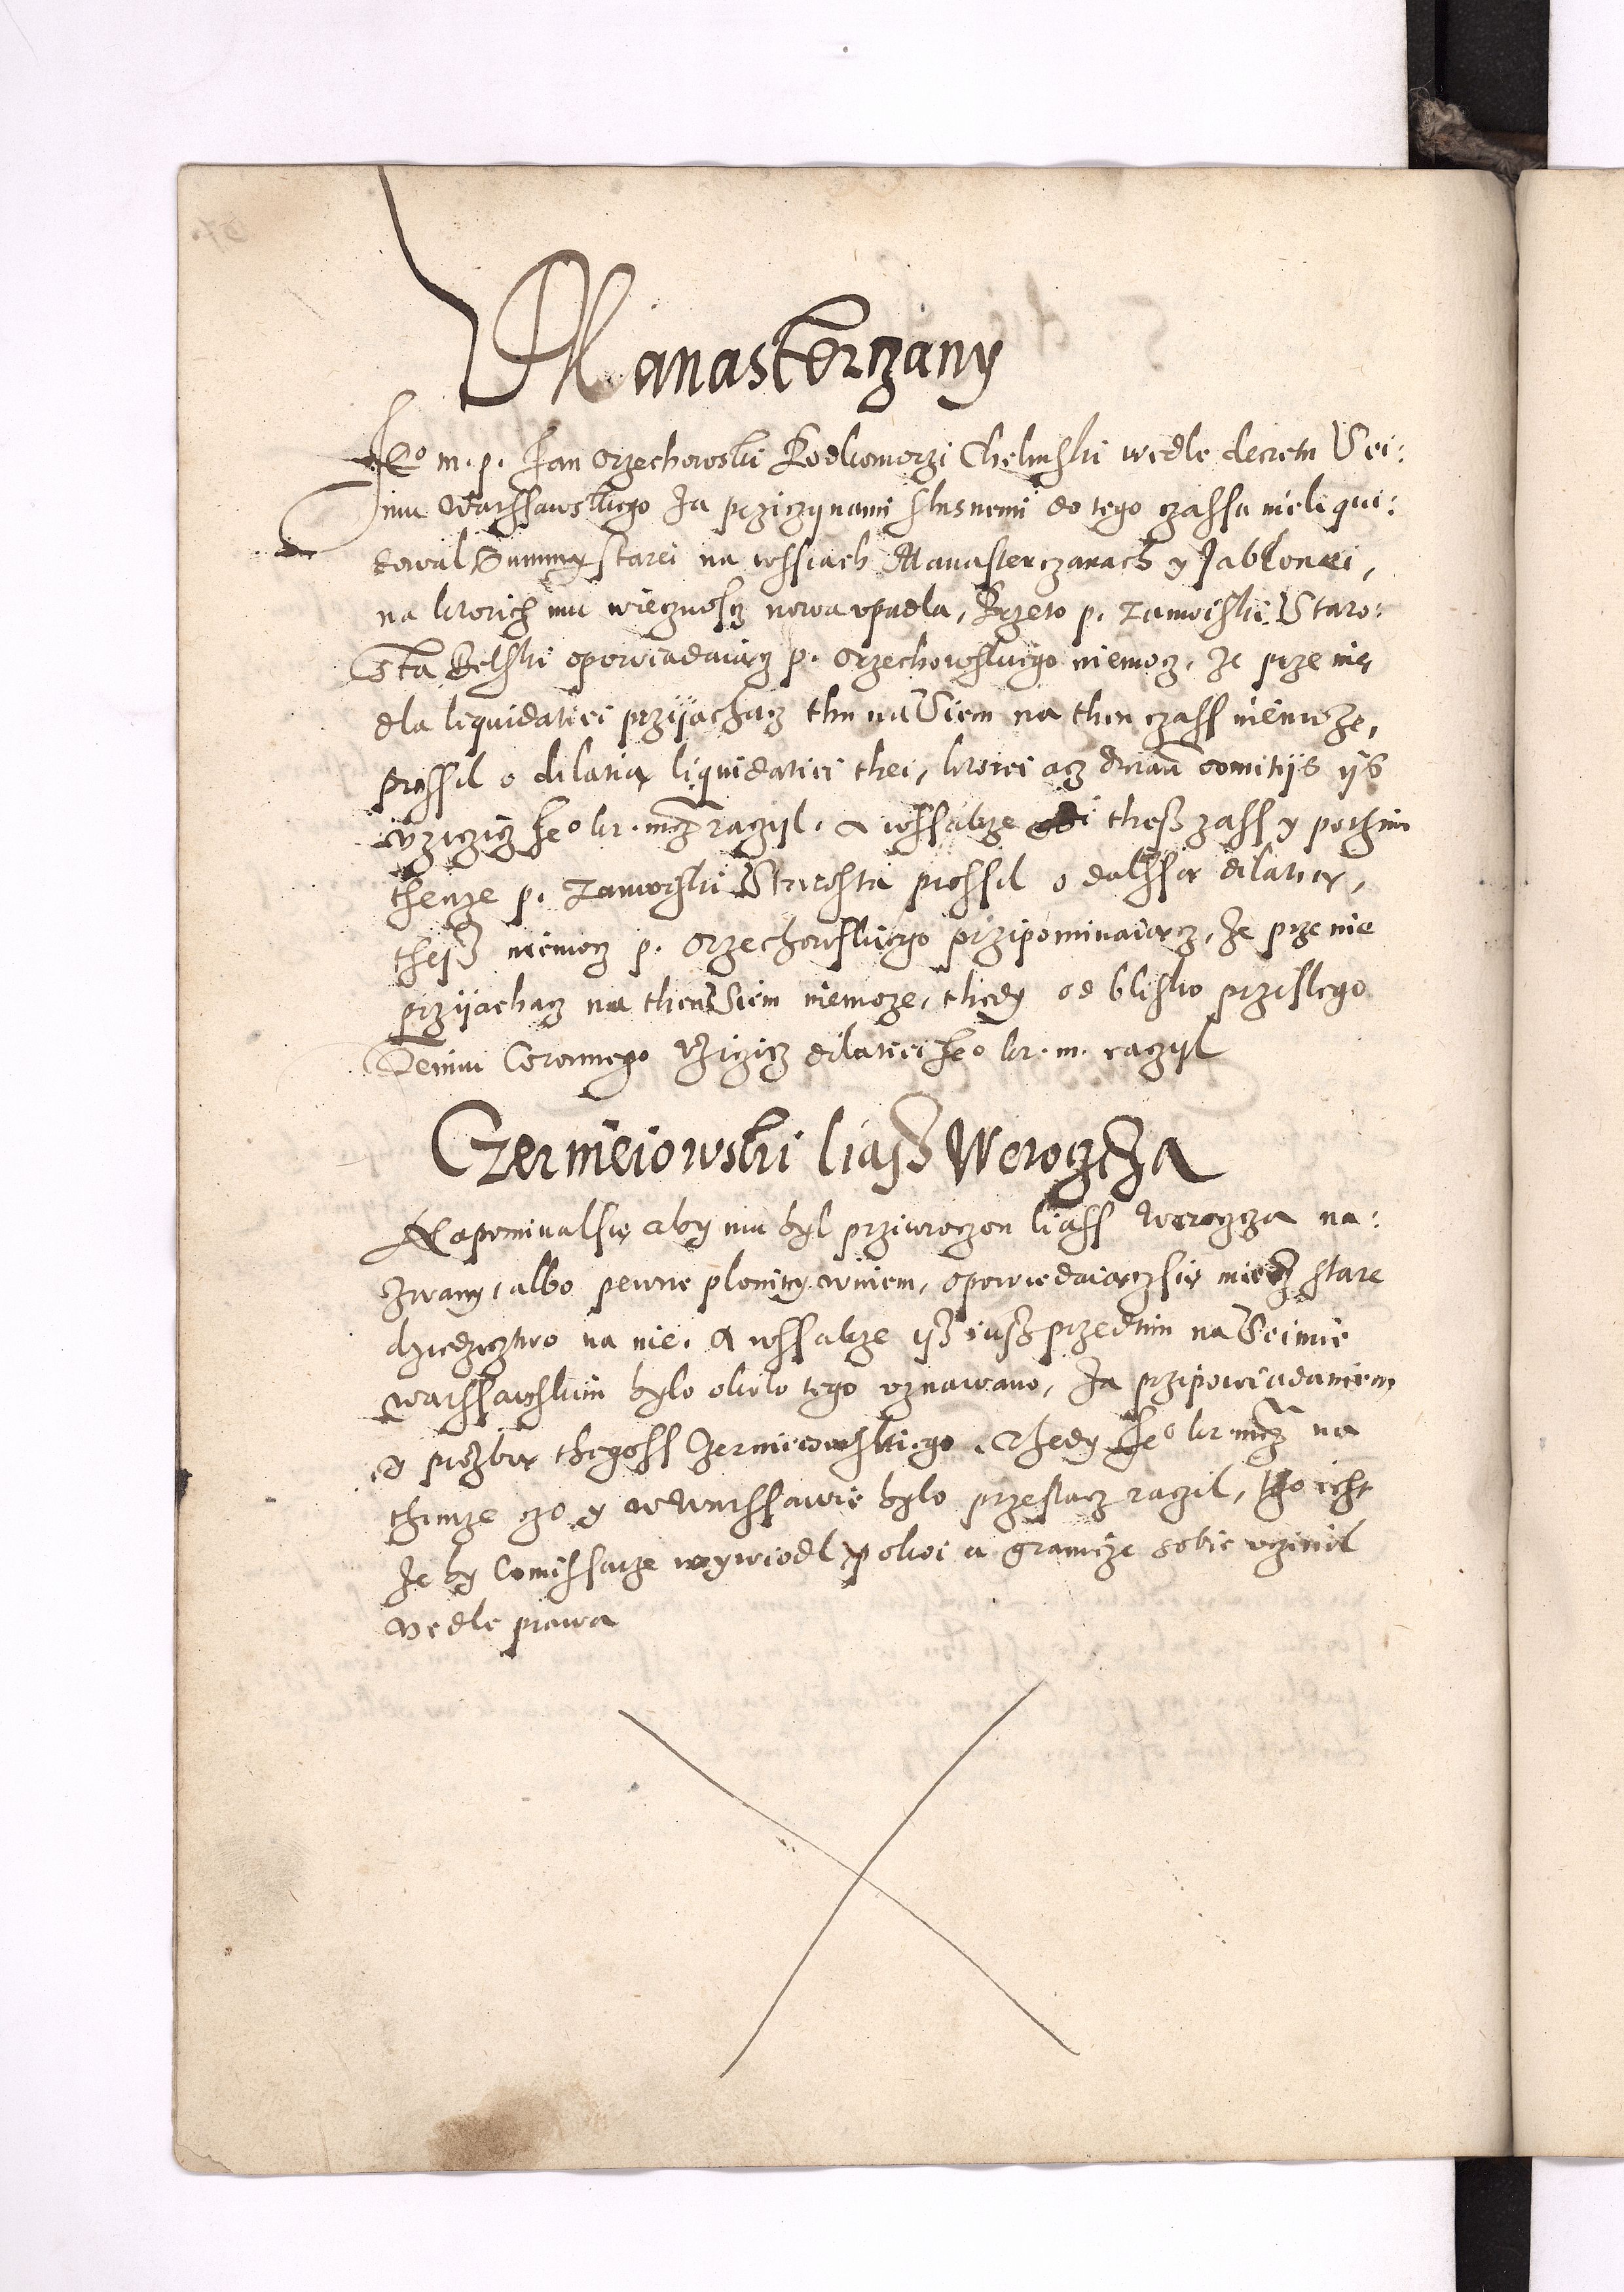 Manasterczany
Je⁰ m. p. Jan Orzechowski Podkomorzi Chelmski wedle decretu Sei:
mu Warssawskiego Za prziczynami slusnemi do tego czassu nieliqui:
dowal Summy starei na wssiach Manasterczanach y Jablonei,
na ktorich mu wiecznoscz nowa vpadla, Przeto p. Zamoiski Staro:
sta Belski opowiadaiącz p. Orzechowskiego niemocz, Ze prze nię
dla liquidatiei przyiachacz thu na Siem na then czass niemoze,
prossil o dilatią liquidatiei thei, ktorei acz comitijs ijs
vziczicz Je⁰ kr. mcz raczyl. A wssakze thesz zass y pothim
thenze p. Zamoiski Starosta prossil o dalssą dilatią,
theisz niemocz p. Orzechowskiego przipominaiącz, Ze prze nie
przyiachacz na then Siem niemoze, thedy od blisko przeslego
Seimu Coronnego Vziczicz dilatiei Je⁰ kr. m. raczyl
Czerniejowski liasz Werocza
Napominalsię aby mu byl prziwroczon liass Werocza na:
zwany, albo pewne plonny winiem, opowiedaiączsię miecz stare
dziedzicztwo na nie. A wssakze isz iusz przedtim na Seimie
Warssawskim bylo okolo tego vznawano, Za przipowiadaniem
y prozbą thegoss Czerniejowskiego. Thedy Je⁰ kr. mcz na
themze czo y w Warssawie bylo przestacz raczil, tho iest
Ze by Comissarze wywiodl y pokoi a granicze sobie vczinil
wedle prawa